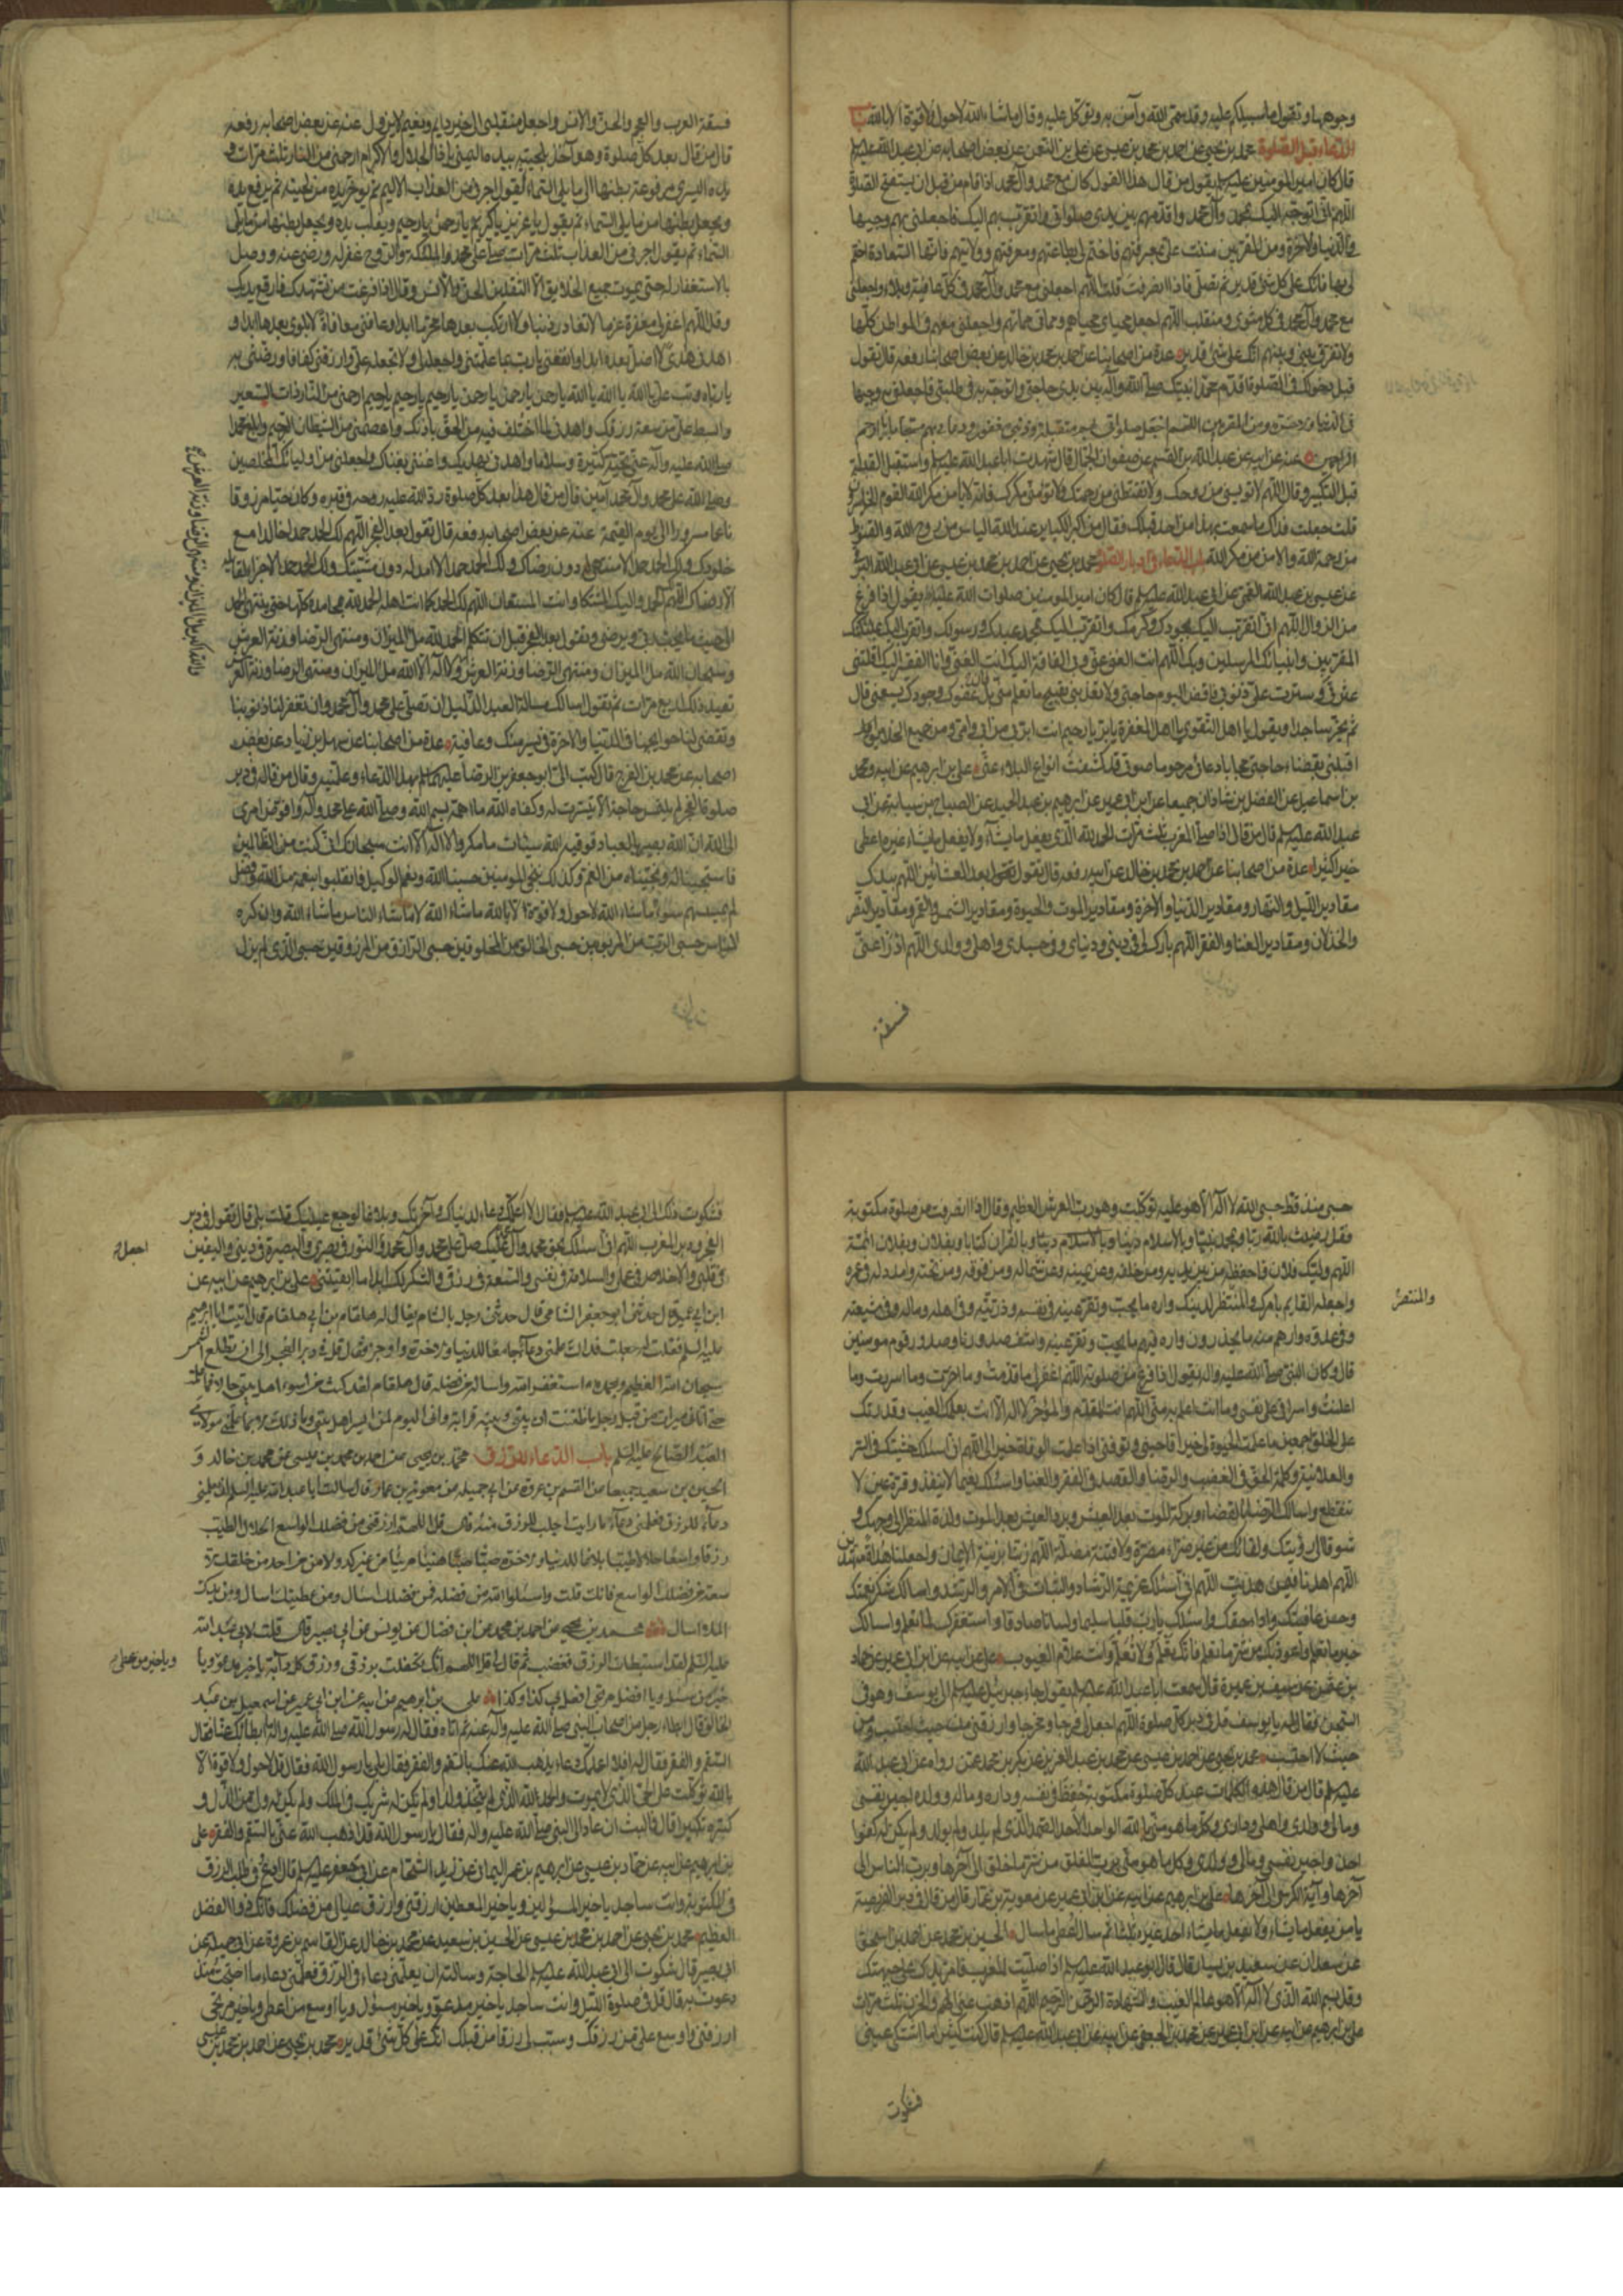 وجوهها وتقول ما سبيلكم عليه وقد سمى الله وآمن به وتوكل عليه وقال ما شاء الله لا حول ولا قوة الا بالله باب
الدعاء قبل الصلوة محمد بن يحيى عن احمد بن محمد بن عيسى عن على بن النعمن عن بعض اصحابه عن ابى عبد الله عليه السلم
قال كان امير المومنين عليه السلم يقول من قال هذا القول كان مع محمد وآل محمد اذا قام من قبل ان يستفتح الصلوة
اللهم انى اتوجه اليك بمحمد وآل محمد واقدمهم بين يدى صلواتى واتقرب بهم اليك فاجعلنى بهم وجيها
فى الدنيا والاخرة ومن المقربين مننت على بمعرفتهم فاختم لى بطاعتهم ومعرفتهم وولايتهم فانها السعادة اختم
لى بها فانك على كل شئ قدير ثم تصلى فاذا انصرفت قلت اللهم اجعلنى مع محمد وآل محمد فى كل عافية وبلاء واجعلنى
مع محمد وآل محمد فى كل مثوى ومنقلب اللهم اجعل محياى محياهم ومماتى مماتهم واجعلنى معهم فى المواطن كلها
ولا تفرق بينى وبينهم انك على شئ قدير عدة من اصحابنا عن احمد بن محمد بن خالد عن بعض اصحابنا رفعه قال تقول
قبل دخولك فى الصلوة اقدم محمدا نبيك صلى الله وآله بين يدى حاجتى واتوجه به فى طلبتى فاجعلنى به وجيها
فى الدنيا والاخرة ومن المقربين اللهم اجعل صلواتى بهم متقبلة وذنبى مغفورا ودعاءى بهم مستجابا يا ارحم
الراحمين عنه عن ابيه عن عبد الله بن القسم عن صفوان الجمال قال شهدت ابا عبد الله عليه السلم واستقبل القبلة
قبل التكبير وقال اللهم لا تويسنى من روحك ولا تقنطنى من رحمتك ولا تؤمنى مكرك فانه لا يأمن مكر الله القوم الخاسرون
قلت جعلت فداك ما سمعت بهذا من احد قبلك فقال من اكبر الكباير عند الله الياس من روح الله والقنوط
من رحمة الله والامن من مكر الله باب الدعاء فى ادبار الصلوات محمد بن يحيى عن احمد بن محمد بن عيسى عن ابى عبد الله البرقى
عن عيسى بن عبد الله القمى عن ابى عبد الله عليه السلم قال كان امير المومنين صلوات الله عليه يقول اذا فرغ
من الزوال اللهم انى اتقرب اليك بجودك وكرمك واتقرب اليك بمحمد عبدك ورسولك واتقرب اليك بملئكتك
المقربين وانبيائك المرسلين وبك اللهم انت الغنى عنى وبى الفاقة اليك انت الغنى وانا الفقير اليك اقلتنى
عثرتى وسترت على ذنوبى فاقض اليوم حاجتى ولا تعذبنى بقبيح ما تعلم منى بل عفوك وجودك يسعنى قال
ثم يخر ساجدا ويقول يا اهل التقوى يا اهل المغفرة يا بر يا رحيم انت ابر بى من ابى وامى ومن جميع الخلايق
اقبلنى بقضاء حاجتى مجابا دعائى مرحوما صوتى قد كشفت انواع البلاء عنى على بن ابرهيم عن ابيه ومحمد
بن اسماعيل عن الفضل بن شاذان جميعا عن ابن ابى عمير عن ابرهيم بن عبد الحميد عن الصباح بن سيابة عن ابى
عبد الله عليه السلم قال من قال اذا صلى المغرب ثلث مرات الحمد لله الذى يفعل ما يشاء ولا يفعل ما يشاء غيره اعطى
خيرا كثيرا عدة من اصحابنا عن احمد بن محمد بن خالد عن ابيه رفعه قال تقول بعد العشائين اللهم بيدك
مقادير الليل والنهار ومقادير الدنيا والاخرة ومقادير الموت والحيوة ومقادير الشمس والقمر ومقادير النصر
والخذلان ومقادير الغنا والفقر اللهم بارك لى فى دينى ودنياى وفى جسدى واهلى وولدى اللهم ادرأ عنى
فسقة
فسقة العرب والعجم والجن والانس واجعل منقلبى الى خير دايم ونعيم لا يزول عنه عن بعض اصحابه رفعه
قال من قال بعد كل صلوة وهو آخذ بلحيته بيده اليمنى يا ذا الجلال والاكرام ارحمنى من النار ثلث مرات و
يده اليسرى مرفوعة بطنها الى ما يلى السماء ثم يقول اجرنى من العذاب الاليم ثم يوخر يده عن لحيته ثم يرفع يده
ويجعل بطنها مما يلى السماء ثم يقول يا عزيز يا كريم يا رحمن يا رحيم ويقلب يده ويجعل بطنها مما يلى
السماء ثم يقول اجرنى من العذاب ثلث مرات صل على محمد والملئكة والروح غفر له ورضى عنه ووصل
بالاستغفار له حتى يموت جميع الخلايق الا الثقلين الجن والانس وقال اذا فرغت من تشهدك فارفع يديك
وقل اللهم اغفر لى مغفرة عزما لا تغادر ذنبا ولا ارتكب بعدها محرما ابدا وعافنى معافاة لا بلوى بعدها ابدا و
اهدنى هدى لا اضل بعده ابدا وانفعنى يا رب بما علمتنى واجعله لى ولا تجعله على وارزقنى كفافا ورضنى به
يا رباه وتب على يا الله يا الله يا الله يا رحمن يا رحمن يا رحمن يا رحيم يا رحيم يا رحيم ارحمنى من النار ذات السعير
وابسط على من سعة رزقك واهدنى لما اختلف فيه من الحق باذنك واعصمنى من الشيطان الرجيم وابلغ محمدا
صلى الله عليه وآله عنى تحية كثيرة وسلاما واهدنى بهديك واغننى بغناك واجعلنى من اوليائك المخلصين
وصلى الله على محمد وآل محمد آمين قال من قال هذا بعد كل صلوة رد الله عليه روحه فى قبره وكان حيا مرزوقا
ناعما مسرورا الى يوم القيمة عنه عن بعض اصحابه رفعه قال تقول بعد الفجر اللهم لك الحمد حمدا خالدا مع
خلودك ولك الحمد حمدا لا منتهى له دون رضاك ولك الحمد حمدا لا امد له دون مشيتك ولك الحمد حمدا لا جزاء لقائله
الا رضاك اللهم لك الحمد واليك المشتكى وانت المستعان اللهم لك الحمد كما انت اهله الحمد لله بمحامده كلها حتى ينتهى الحمد
الى حيث ما يحب ربى ويرضى وتقول بعد الفجر قبل ان تتكلم الحمد لله ملأ الميزان ومنتهى الرضا وزنة العرش
وسبحان الله ملأ الميزان ومنتهى الرضا وزنة العرش ولا اله الا الله ملأ الميزان ومنتهى الرضا وزنة العرش
والله اكبر ملأ الميزان ومنتهى الرضا وزنة العرش
تعيد ذلك اربع مرات ثم تقول اسالك مسالة العبد الذليل ان تصلى على محمد وآل محمد وان تغفر لنا ذنوبنا
وتقضى لنا حوايجنا فى الدنيا والاخرة فى يسر منك وعافية عدة من اصحابنا عن سهل بن زياد عن بعض
اصحابه عن محمد بن الفرج قال كتب الى ابو جعفر بن الرضا عليهم السلم بهذا الدعاء وعلمنيه وقال من قاله فى دبر
صلوة الفجر لم يلتمس حاجة الا تيسرت له وكفاه الله ما اهمه بسم الله وصلى الله على محمد وآله وافوض امرى
الى الله ان الله بصير بالعباد فوقيه الله سيئات ما مكروا لا اله الا انت سبحانك انى كنت من الظالمين
فاستجبنا له ونجيناه من الغم وكذلك ننجى المومنين حسبنا الله ونعم الوكيل فانقلبوا بنعمة من الله وفضل
لم يمسسهم سوء ما شاء الله لا حول ولا قوة الا بالله ما شاء الله لا ما شاء الناس ما شاء الله وان كره
الناس حسبى الرب من المربوبين حسبى الخالق من المخلوقين حسبى الرازق من المرزوقين حسبى الذى لم يزل
حسبى منذ قط حسبى الله لا اله الا هو عليه توكلت وهو رب العرش العظيم وقال اذا انصرفت من صلوة مكتوبة
فقل رضيت بالله ربا وبمحمد نبيا وبالاسلام دينا وبالقران كتابا وبفلان وبفلان ائمة
اللهم وليك فلان فاحفظه من بين يديه ومن خلفه وعن يمينه وعن شماله ومن فوقه ومن تحته وامدد له فى عمره
واجعله القايم بامرك والمنتظر لدينك واره ما يحب وتقر عينه فى نفسه وذريته وفى اهله وماله وفى شيعته
والمنتصر
وفى عدوه وارهم منه ما يحذرون واره فيهم ما يحب وتقر عينه واشف صدورنا وصدور قوم مومنين
قال وكان النبى صلى الله عليه واله يقول اذا فرغ من صلوته اللهم اغفر لى ما قدمت وما اخرت وما اسررت وما
اعلنت واسرافى على نفسى وما انت اعلم به منى اللهم انت المقدم والمؤخر لا اله الا انت بعلمك الغيب وقدرتك
على الخلق اجمعين ما علمت الحيوة لى خيرا فاحينى وتوفنى اذا علمت الوفاة خيرا لى اللهم انى اسئلك خشيتك فى السر
والعلانية وكلمة الحق فى الغضب والرضا والقصد فى الفقر والغنا واسئلك نعيما لا ينفد وقرة عين لا
تنقطع واسالك الرضا بالقضاء وبركة الموت بعد العيش وبرد العيش بعد الموت ولذة المنظر الى وجهك و
شوقا الى رؤيتك ولقائك من غير ضراء مضرة ولا فتنة مضلة اللهم زينا بزينة الايمان واجعلنا هداة مهتدين
اللهم اهدنا فيمن هديت اللهم انى اسئلك عزيمة الرشاد والثبات فى الامر والرشد واسالك شكر نعمتك
وحسن عافيتك واداء حقك واسئلك يا رب قلبا سليما ولسانا صادقا واستغفرك لما تعلم واسالك
خير ما تعلم واعوذ بك من شر ما تعلم فانك تعلم ولا نعلم وانت علام الغيوب على عن ابيه عن ابن ابى عمير عن حماد
بن عثمن عن سيف بن عميرة قال سمعت ابا عبد الله عليه السلم يقول جاء جبرئيل عليه السلم الى يوسف وهو فى
السجن فقال له يا يوسف قل فى دبر كل صلوة اللهم اجعل لى فرجا ومخرجا وارزقنى من حيث احتسب ومن
حيث لا احتسب محمد بن يحيى عن احمد بن محمد بن عيسى عن محمد بن عبد العزيز عن بكر بن محمد عمن رواه عن ابى عبد الله
عليه السلم قال من قال هذه الكلمات عند كل صلوة مكتوبة حفظ فى نفسه وداره وماله وولده اجير نفسى
ومالى وولدى واهلى ودارى وكل ما هو منى بالله الواحد الاحد الصمد الذى لم يلد ولم يولد ولم يكن له كفوا
احد واجير نفسى ومالى وولدى وكل ما هو منى برب الفلق من شر ما خلق الى آخرها وبرب الناس الى
آخرها وآية الكرسى الى آخرها على بن ابرهيم عن ابيه عن ابن ابى عمير عن معوية بن عمار قال من قال فى دبر الفريضة
يا من يفعل ما يشاء ولا يفعل ما يشاء احد غيره ثلثا ثم سال اعطى ما سال الحسين بن محمد عن احمد بن اسحق
عن سعدان عن سعيد بن يسار قال قال ابو عبد الله عليه السلم اذا صليت المغرب فامر يدك على جبهتك
وقل بسم الله الذى لا اله الا هو عالم الغيب والشهادة الرحمن الرحيم اللهم اذهب عنى الهم والحزن ثلث مرات
على بن ابرهيم عن ابيه عن ابن ابى عمير عن محمد بن الجعفى عن ابيه عن ابى عبد الله عليه السلم قال كنت كثيرا ما اشتكى عينى
فشكوت
فشكوت ذلك الى ابى عبد الله عليه السلم فقال الا اعلمك دعاء لدنياك وآخرتك وبلاغا لوجع عينيك قلت بلى قال تقول فى دبر
الفجر ودبر المغرب اللهم انى اسئلك بحق محمد وآل محمد عليك صل على محمد وآل محمد والنور فى بصرى والبصيرة فى دينى واليقين
اجعل
فى قلبى والاخلاص فى عملى والسلامة فى نفسى والسعة فى رزقى والشكر لك ابدا ما ابقيتنى على بن ابرهيم عن ابيه عن
ابن ابى عمير قال حدثنى ابو جعفر الشامى قال حدثنى رجل بالشام يقال له هلقام بن ابى هلقام قال اتيت ابا ابرهيم
عليه السلم فقلت له جعلت فداك علمنى دعاء جامعا للدنيا والاخرة واوجز فقال قل فى دبر الفجر الى ان تطلع الشمس
سبحان الله العظيم وبحمده استغفر الله واساله من فضله قال هلقام لقد كنت من اسوء اهل بيتى حالا فما علمت
حتى اتانى ميراث من قبل رجل ما ظننت ان بينى وبينه قرابة وانى اليوم لمن ايسر اهل بيتى وما ذلك الا بما علمنى مولاى
العبد الصالح عليه السلم باب الدعاء للرزق محمد بن يحيى عن احمد بن محمد بن عيسى عن محمد بن خالد و
الحسين بن سعيد جميعا عن القسم بن عروة عن ابى جميلة عن معوية بن عمار قال سالت ابا عبد الله عليه السلم ان يعلمنى
دعاء للرزق فعلمنى دعاء ما رايت اجلب للرزق منه قال قل اللهم ارزقنى من فضلك الواسع الحلال الطيب
رزقا واسعا حلالا طيبا بلاغا للدنيا والاخرة صبا صبا هنيئا مريئا من غير كد ولا من من احد من خلقك الا
سعة من فضلك الواسع فانك قلت واسئلوا الله من فضله فمن فضلك اسال ومن عطيتك اسال ومن يدك
الملأ اسال محمد بن يحيى عن احمد بن محمد عن ابن فضال عن يونس عن ابى بصير قال قلت لابى عبد الله
عليه السلم لقد استبطات الرزق فغضب ثم قال لى قل اللهم انك تكفلت برزقى ورزق كل دابة يا خير مدعو ويا
ويا خير من اعطى
خير من سئل ويا افضل مرتجى افعل بى كذا وكذا على بن ابرهيم عن ابيه عن ابن ابى عمير عن اسمعيل بن عبد
الخالق قال ابطاء رجل من اصحاب النبى صلى الله عليه وآله عنه ثم اتاه فقال له رسول الله صلى الله عليه واله ما ابطأ بك عنا فقال
السقم والفقر فقال له افلا اعلمك دعاء يذهب الله عنك بالسقم والفقر فقال بلى يا رسول الله فقال قل لا حول ولا قوة الا
بالله توكلت على الحى الذى لا يموت والحمد لله الذى لم يتخذ ولدا ولم يكن له شريك فى الملك ولم يكن له ولى من الذل و
كبره تكبيرا قال فما لبث ان عاد الى النبى صلى الله عليه واله فقال يا رسول الله قد اذهب الله عنى بالسقم والفقر على
بن ابرهيم عن ابيه عن حماد بن عيسى عن ابرهيم بن عمر اليمانى عن زيد الشحام عن ابى جعفر عليه السلم قال ادع فى طلب الرزق
فى المكتوبة وانت ساجد يا خير المسؤلين ويا خير المعطين ارزقنى وارزق عيالى من فضلك فانك ذو الفضل
العظيم محمد بن يحيى عن احمد بن محمد بن عيسى عن الحسين بن سعيد عن محمد بن خالد عن القاسم بن عروة عن ابى جميلة عن
ابى بصير قال شكوت الى ابى عبد الله عليه السلم الحاجة وسالته ان يعلمنى دعاء فى الرزق فعلمنى دعاء ما احتجت منذ
دعوت به قال قل فى صلوة الليل وانت ساجد يا خير مدعو ويا خير مسؤل ويا اوسع من اعطى ويا خير مرتجى
ارزقنى واوسع على من رزقك وسبب لى رزقا من قبلك انك على كل شئ قدير محمد بن يحيى عن احمد بن محمد بن عيسى